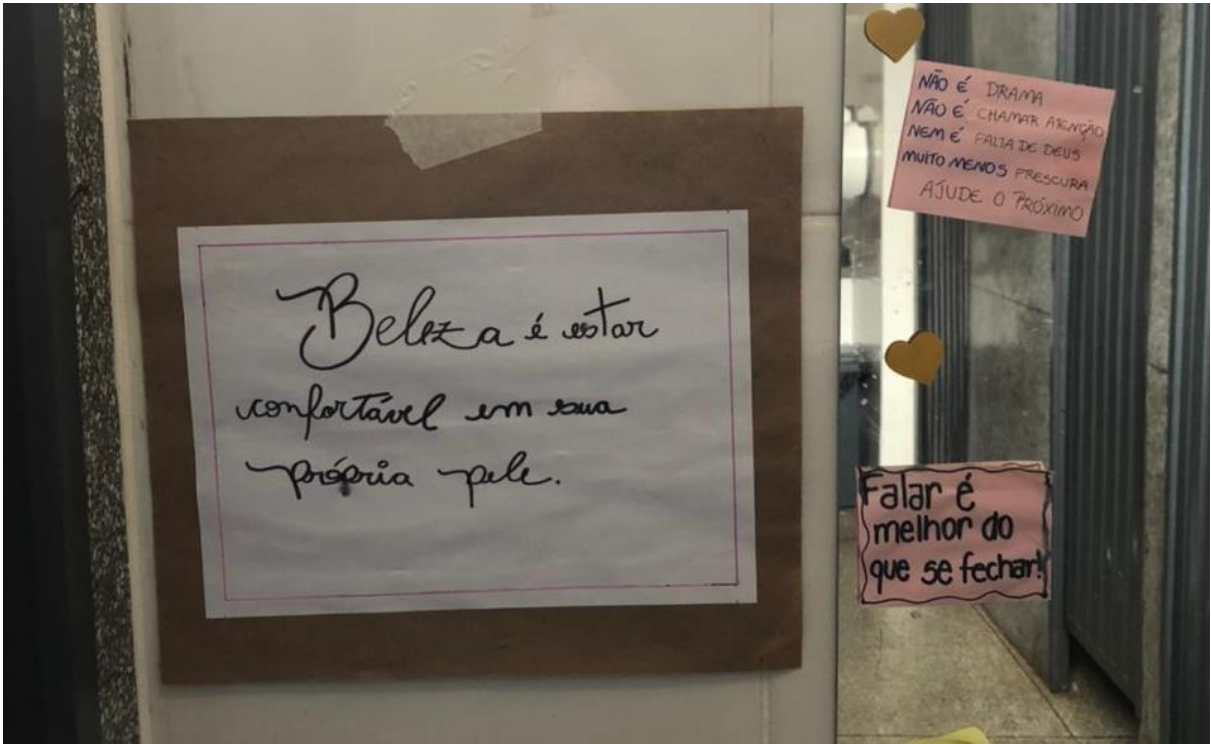 Beleza é estar
confortável em sua
própria pele.
NÃO É DRAMA
NÃO É CHAMAR ATENÇÃO
NEM É FALTA DE DEUS
MUITO MENOS FRESCURA
AJUDE O PRÓXIMO
Falar é
melhor do
que se fechar!